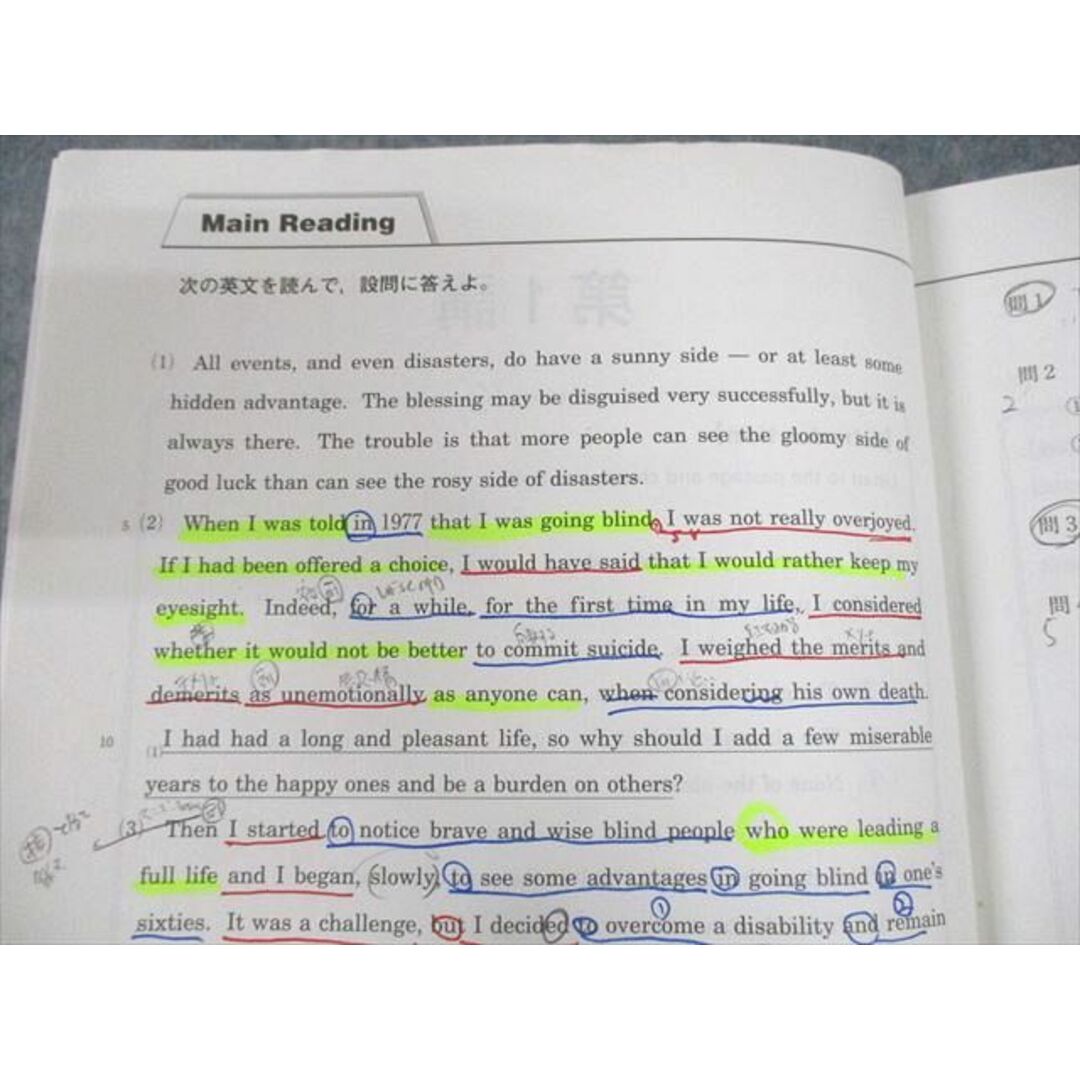 Main Reading
次の英文を読んで，設問に答えよ。
(1) All events, and even disasters, do have a sunny side — or at least some
hidden advantage. The blessing may be disguised very successfully, but it is
always there. The trouble is that more people can see the gloomy side of
good luck than can see the rosy side of disasters.
5 (2) When I was told in 1977 that I was going blind, I was not really overjoyed.
If I had been offered a choice, I would have said that I would rather keep my
eyesight. Indeed, for a while, for the first time in my life, I considered
whether it would not be better to commit suicide. I weighed the merits and
demerits as unemotionally as anyone can, when considering his own death.
10 (1) I had had a long and pleasant life, so why should I add a few miserable
years to the happy ones and be a burden on others?
(3) Then I started to notice brave and wise blind people who were leading a
full life and I began, (slowly), to see some advantages in going blind in one's
① ②
sixties. It was a challenge, but I decided to overcome a disability and remain
問1
問2
2
問3
問
5